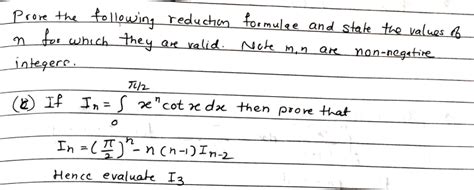 Prove the following reduction formulae and state the values of
n for which they are valid. Note m,n are non-negative
integers.
π/2
(2) If Iₙ = ∫ xⁿ cot x dx then prove that
0
Iₙ = (π/2)ⁿ - n (n-1) Iₙ₋₂
Hence evaluate I₃